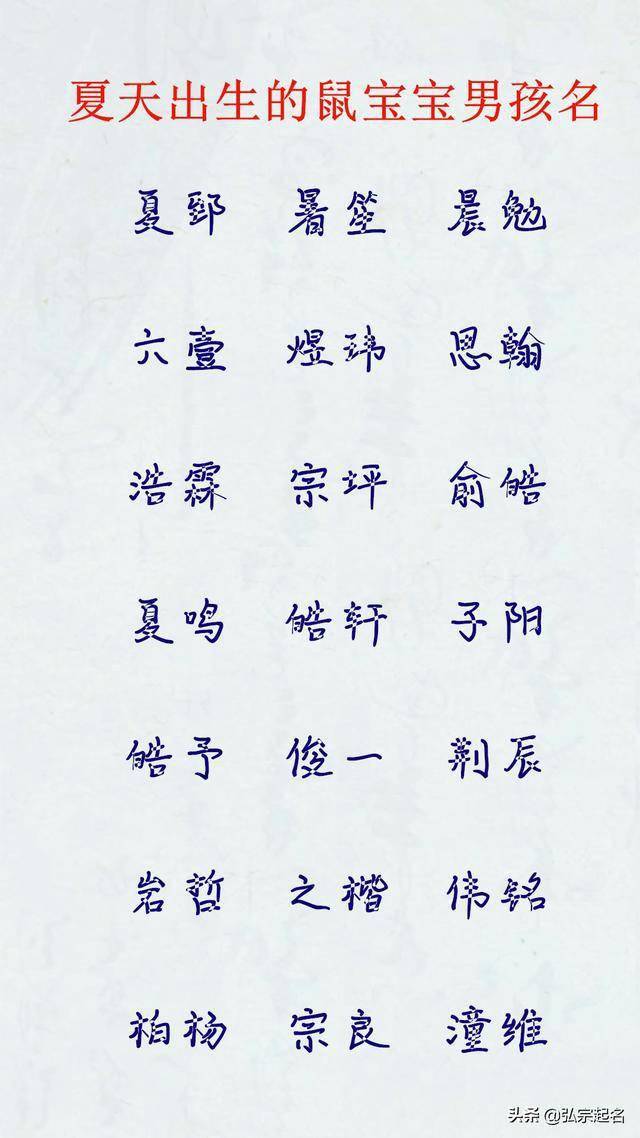 夏天出生的鼠宝宝男孩名
夏郢 暑笙 晨勉
六壹 煜玮 思翰
浩霖 宗坪 俞皓
夏鸣 皓轩 子阳
皓予 俊一 荆辰
岩哲 之楷 伟铭
柏杨 宗良 潼维
头条 @弘宗起名